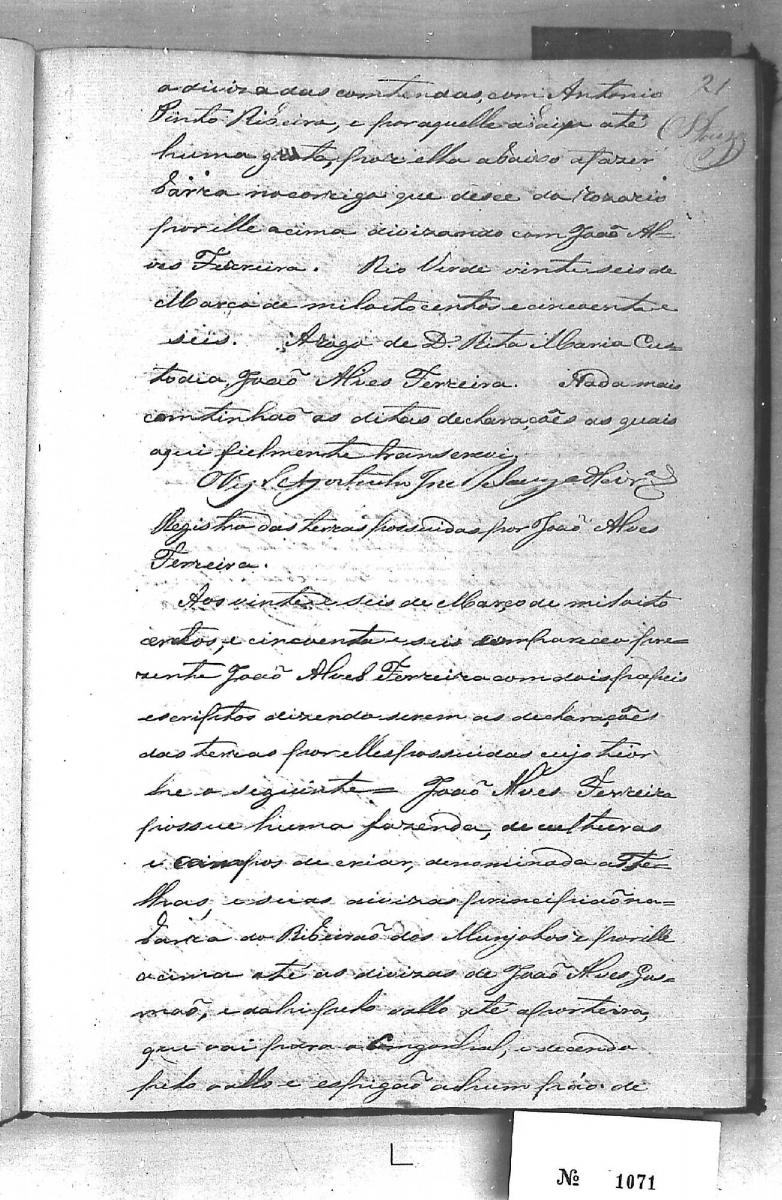 21
a diviza das comtendas, com Antonio
Pinto Ribeira, e por aquelle abaixo até
huma grota, por ella abaixo a fazer
barra no corrigo que desce do Rozario
por elle acima divizando com Joaõ Al=
ves Ferreira. Rio Verde vinte seis de
Março de mil oito centos e cincoenta e
seis. A rogo de D. Rita Maria Cus=
todia, Joaõ Alves Ferreira. Nada mais
comtinhaõ as ditas declarações as quais
aqui fielmente transcrevi.
O Vigr.
Registro das terras possuidas por Joaõ Alves
Ferreira.
Aos vinte e seis de Março de mil oito
centos, e cincoenta e seis compareceo pre=
zente Joaõ Alves Ferreira com dois papeis
escriptos dizendo serem as declarações
das terras por elles possuidas cujo thior
he o seguinte = Joaõ Alves Ferreira
possue huma fazenda, de culturas
e campos de criar, denominada a Te=
lhas, e suas divizas principiaõ na=
barra do Ribeiraõ dos Munjolos e por elle
acima até as divizas de Joaõ Alves Gus=
maõ, e dahi pelo vallo até a porteira,
que vai para o Congonhal, e decendo
pelo vallo e espigaõ a hum páo de
Nº 1071